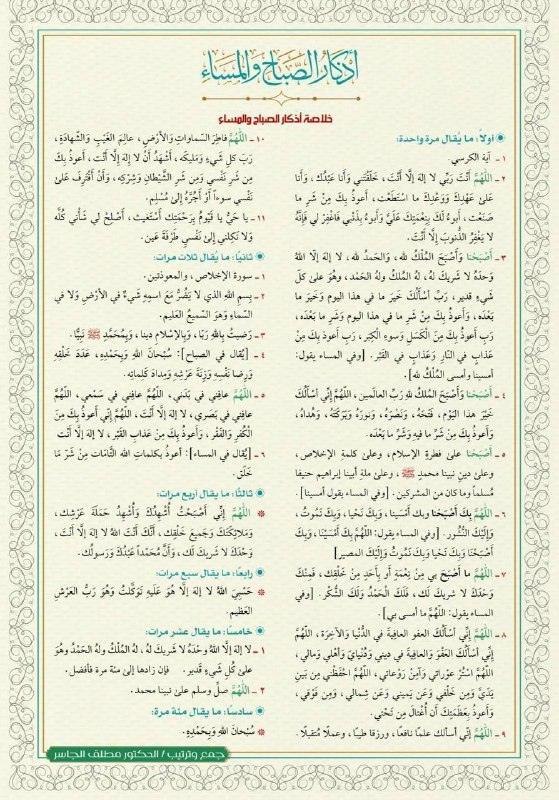 أذكار الصباح والمساء
خلاصة أذكار الصباح والمساء
أولاً: ما يُقال مرة واحدة:
١ - آية الكرسي
٢ - اللَّهُمَّ أَنْتَ رَبِّي لا إلهَ إلَّا أَنْتَ، خَلَقْتَني وأنا عَبْدُكَ، وأنا
عَلى عَهْدِكَ وَوَعْدِكَ ما اسْتَطَعْت، أعوذُ بِكَ مِنْ شَرِ ما
صَنَعْت، أبوءُ لَكَ بِنِعْمَتِكَ عَلَيَّ وَأَبوءُ بِذَنْبي فاغْفِرْ لي فَإِنَّهُ
لا يَغْفِرُ الذُّنوبَ إلَّا أنْتَ.
٣ - أَصْبَحْنا وَأَصْبَحَ المُلْكُ لله، والحَمدُ لله، لا إلهَ إلَّا اللهُ
وَحدَهُ لا شَريكَ لهُ، لهُ المُلكُ ولهُ الحَمْد، وهُوَ على كلِّ
شَيءٍ قدير، رَبِّ أسْأَلُكَ خَيرَ ما في هذا اليوم وَخَيرَ ما
بَعْدَه، وَأَعوذُ بِكَ مِنْ شَرِ ما في هذا اليوم وَشَرِ ما بَعْدَه،
رَبِ أَعوذُ بِكَ مِنَ الْكَسَلِ وَسوءِ الْكِبَر، رَبِ أعوذُ بِكَ مِنْ
عَذابٍ في النّارِ وَعَذابٍ في القَبْر. [وفي المساء يقول:
أمسينا وأمسى المُلْكُ لله].
٤ - أَصْبَحْنا وَأَصْبَحَ المُلكُ للهِ رَبِّ العالَمين، اللَّهُمَّ إنِّي أَسْأَلُكَ
خَيْرَ هذا اليَوْم، فَتْحَهُ، وَنَصْرَهُ، وَنورَهُ وَبَرَكَتَهُ، وَهُداهُ،
وَأَعوذُ بِكَ مِنْ شَرِّ ما فيهِ وَشَرِّ ما بَعْدَه.
٥ - أَصْبَحْنا على فطرةِ الإسلام، وعلى كلمةِ الإخلاص،
وعلى دينِ نبينا محمدٍ ﷺ، وعلى ملةِ أبينا إبراهيم حنيفا
مُسلماً وما كان من المشركين. [وفي المساء يقول أمسينا].
٦ - اللَّهُمَّ بِكَ أَصْبَحْنا وبك أمْسَينا، وَبِكَ نَحْيا، وَبِكَ نَمُوتُ،
وَإِلَيْكَ النُّشُور. [وفي المساء يقول: اللَّهُمَّ بِكَ أَمْسَيْنا، وَبِكَ
أَصْبَحْنا وَبِكَ نَحيا وَبِكَ نَمُوتُ وَإِلَيْكَ المصير]
٧ - اللَّهُمَّ ما أَصْبَحَ بي مِنْ نِعْمَةٍ أو بِأَحَدٍ مِنْ خَلْقِك، فَمِنْكَ
وَحْدَكَ لا شريكَ لَك، فَلَكَ الْحَمْدُ وَلَكَ الشُّكْر. [وفي
المساء يقول: اللَّهُمَّ ما أمسى بي].
٨ - اللَّهُمَّ إنِّي أسْأَلُكَ العفو العافِيَةَ في الدُّنْيا وَالآخِرَة، اللَّهُمَّ
إنِّي أسألُكَ العَفْوَ وَالعافِيَةَ في ديني وَدُنْيايَ وَأَهْلي وَمالي،
اللَّهُمَّ اسْتُرْ عوْراتي وَآمِنْ رَوْعاتي، اللَّهُمَّ احْفَظْني مِن بَينِ
يَدَيَّ وَمِن خَلْفي وَعَن يَميني وَعَن شِمالي، وَمِن فَوْقي،
وَأَعوذُ بِعَظَمَتِكَ أَن أُغْتالَ مِن تَحْتي.
٩ - اللَّهُمَّ إني أسألك علمًا نافعًا، ورزقا طيبًا، وعملًا مُتقبلًا.
١٠ - اللَّهُمَّ فاطِرَ السّماواتِ وَالأرْضِ، عالِمَ الغَيْبِ وَالشَّهادَةِ،
رَبَّ كلِ شَيءٍ وَمَليكَه، أَشْهَدُ أَنْ لا إِلهَ إِلّا أَنْت، أَعوذُ بِكَ
مِن شَرِ نَفْسي وَمِن شَرِ الشَّيْطانِ وَشِركِه، وَأَنْ أَقْتَرِفَ عَلى
نَفْسي سوءاً أَوْ أَجُرَّهُ إِلى مُسْلِم.
١١ - يا حَيُّ يا قَيُّومُ بِرَحْمَتِكَ أَسْتَغيث، أَصْلِحْ لي شَأني كُلَّه
وَلا تَكِلني إِلى نَفْسي طَرْفَةَ عَين.
ثانيًا: ما يُقال ثلاث مرات:
١ - سورة الإخلاص، والمعوذتين.
٢ - بِسمِ اللهِ الذي لا يَضُرُّ مَعَ اسمِهِ شَيءٌ في الأرْضِ وَلا في
السّماءِ وَهوَ السّميعُ العَليم.
٣ - رَضيتُ باللهِ رَبًا، وَبِالإسْلامِ دينا، وبِمُحَمَّدٍ ﷺ نَبيًّا.
٤ - [يُقال في الصباح]: سُبْحانَ اللهِ وَبِحَمْدِهِ، عَدَدَ خَلْقِهِ
وَرِضا نَفْسِهِ وَزِنَةَ عَرْشِهِ وَمِدادَ كَلِماتِه.
٥ - اللَّهُمَّ عافِني في بَدَني، اللَّهُمَّ عافِني في سَمْعي، اللَّهُمَّ
عافِني في بَصَري، لا إلهَ إلّا أَنْتَ، اللَّهُمَّ إنِّي أَعوذُ بِكَ مِنَ
الْكُفرِ وَالفَقْر، وَأَعوذُ بِكَ مِنْ عَذابِ القَبْرِ، لا إلهَ إلّا أَنْتَ
٦ - [يُقال في المساء]: أعوذُ بكلماتِ الله التَّامَّات مِنْ شَرِّ مَا
خَلَق.
ثالثًا: ما يقال أربع مرات:
اللَّهُمَّ إِنِّي أَصْبَحْتُ أُشْهِدُكَ وَأُشْهِدُ حَمَلَةَ عَرْشِكَ،
وَمَلائِكَتَكَ وَجَميعَ خَلْقِك، أَنَّكَ أَنْتَ اللهُ لا إلهَ إلّا أَنْتَ،
وَحْدَكَ لا شَريكَ لَك، وَأَنَّ مُحَمَّداً عَبْدُكَ وَرَسولُك.
رابعًا: ما يقال سبع مرات:
حَسْبِيَ اللهُ لا إلهَ إلّا هُوَ عَلَيهِ تَوَكَّلتُ وَهُوَ رَبُّ العَرْشِ
العَظيم.
خامسًا: ما يقال عشر مرات:
١ - لا إلهَ إلّا اللهُ وحْدَهُ لا شَريكَ لهُ، لهُ المُلْكُ ولهُ الحَمْدُ وهُوَ
عَلى كُلِّ شَيءٍ قَدير. فإن زادها إلى مئة مرة فأفضل.
٢ - اللَّهُمَّ صلِّ وسلم على نبينا محمد.
سادسًا: ما يقال مئة مرة:
سُبْحانَ اللهِ وَبِحَمْدِهِ.
جمع وترتيب / الدكتور مطلق الجاسر